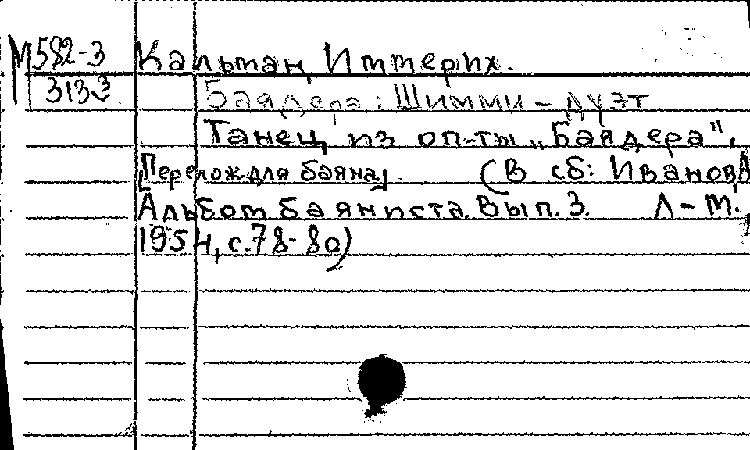 М582-3 Кальман, Имтерих.
3133 Баядера: Шимми - дуэт
Танец из оп-ты „Баядера".
[Перелож. для баяна]. (В сб: Иванов, А
Альбом баяниста. Вып. 3. Л-М.,
1954, с. 78-80)